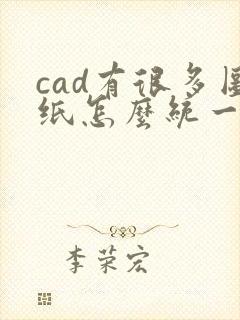 cad有很多图
纸怎麽统一
李荣宏